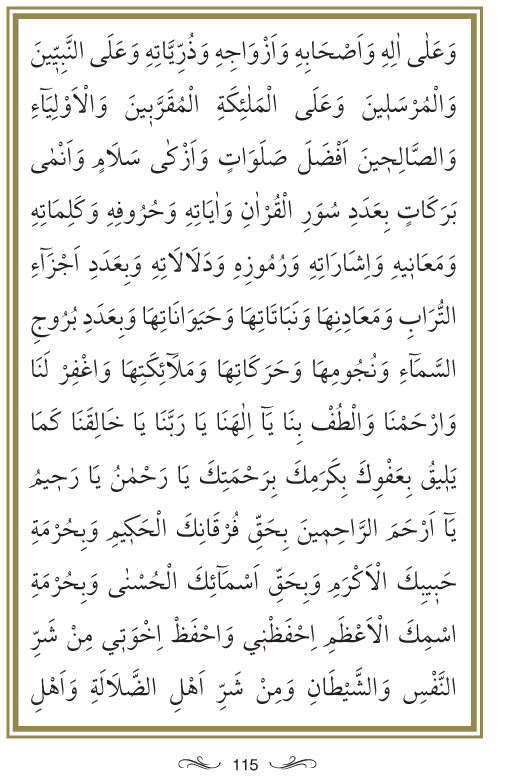 وَعَلٰى اٰلِهِ وَاَصْحَابِهِ وَاَزْوَاجِهِ وَذُرِّيَّاتِهِ وَعَلَى النَّبِيّ۪ينَ
وَالْمُرْسَل۪ينَ وَعَلَى الْمَلٰئِكَةِ الْمُقَرَّب۪ينَ وَالْاَوْلِيَٓاءِ
وَالصَّالِح۪ينَ اَفْضَلَ صَلَوَاتٍ وَاَزْكٰى سَلَامٍ وَاَنْمٰى
بَرَكَاتٍ بِعَدَدِ سُوَرِ الْقُرْاٰنِ وَاٰيَاتِهِ وَحُرُوفِهِ وَكَلِمَاتِهِ
وَمَعَان۪يهِ وَاِشَارَاتِهِ وَرُمُوزِهِ وَدَلَالَاتِهِ وَبِعَدَدِ اَجْزَٓاءِ
التُّرَابِ وَمَعَادِنِهَا وَنَبَاتَاتِهَا وَحَيَوَانَاتِهَا وَبِعَدَدِ بُرُوجِ
السَّمَٓاءِ وَنُجُومِهَا وَحَرَكَاتِهَا وَمَلَٓائِكَتِهَا وَاغْفِرْ لَنَا
وَارْحَمْنَا وَالْطُفْ بِنَا يَٓا اِلٰهَنَا يَا رَبَّنَا يَا خَالِقَنَا كَمَا
يَل۪يقُ بِعَفْوِكَ بِكَرَمِكَ بِرَحْمَتِكَ يَا رَحْمٰنُ يَا رَح۪يمُ
يَٓا اَرْحَمَ الرَّاحِم۪ينَ بِحَقِّ فُرْقَانِكَ الْحَك۪يمِ وَبِحُرْمَةِ
حَب۪يبِكَ الْاَكْرَمِ وَبِحَقِّ اَسْمَٓائِكَ الْحُسْنٰى وَبِحُرْمَةِ
اسْمِكَ الْاَعْظَمِ اِحْفَظْن۪ي وَاحْفَظْ اِخْوَت۪ي مِنْ شَرِّ
النَّفْسِ وَالشَّيْطَانِ وَمِنْ شَرِّ اَهْلِ الضَّلَالَةِ وَاَهْلِ
115